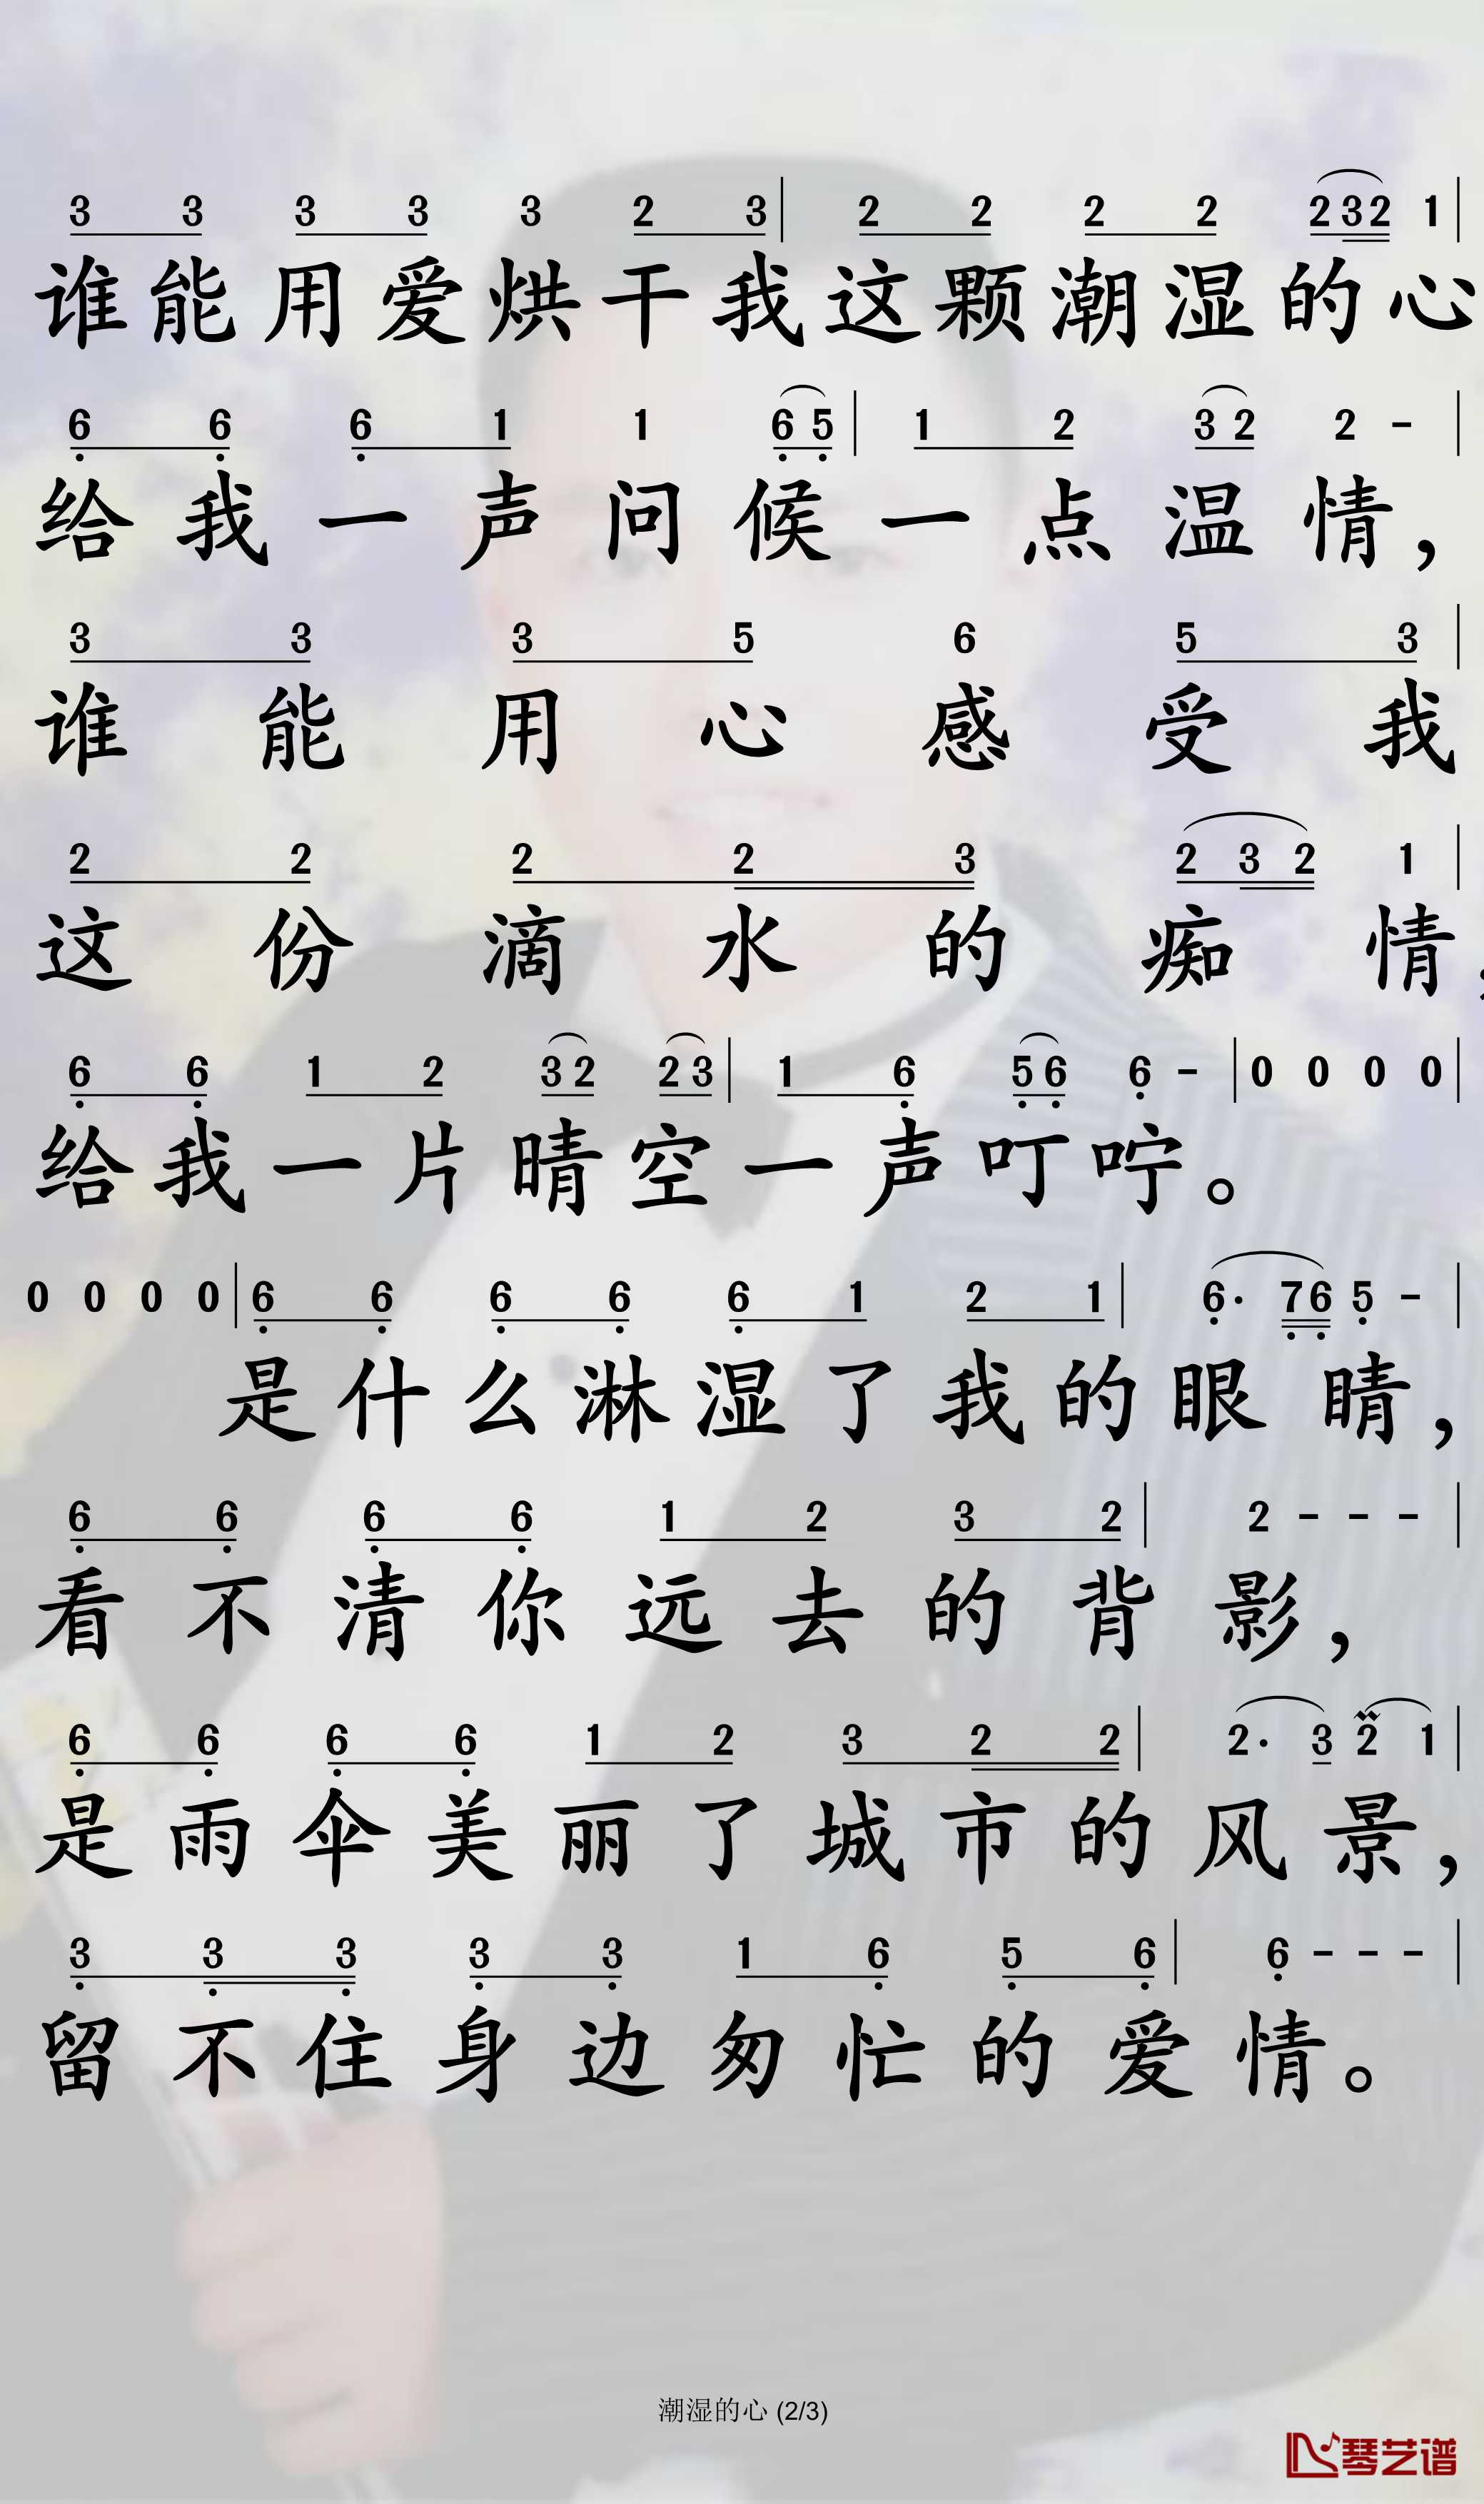 3 3 3 3 3 2 3 | 2 2 2 2 2 3 2 1 |
谁能用爱烘干我这颗潮湿的心
6 6 6 1 1 6 5 | 1 2 3 2 2 - |
给我一声问候一点温情，
3 3 3 5 6 5 3 |
谁能用心感受我
2 2 2 2 3 2 3 2 1 |
这份滴水的痴情，
6 6 1 2 3 2 2 3 | 1 6 5 6 6 - | 0 0 0 0 |
给我一片晴空一声叮咛。
0 0 0 0 | 6 6 6 6 6 1 2 1 | 6· 7 6 5 - |
是什么淋湿了我的眼睛，
6 6 6 6 1 2 3 2 | 2 - - - |
看不清你远去的背影，
6 6 6 6 1 2 3 2 2 | 2· 3 2 1 |
是雨伞美丽了城市的风景，
3 3 3 3 3 1 6 5 6 | 6 - - - |
留不住身边匆忙的爱情。
潮湿的心 (2/3)
琴艺谱